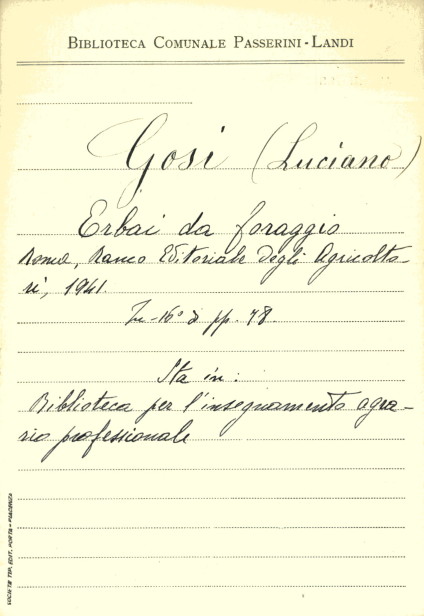 BIBLIOTECA COMUNALE PASSERINI-LANDI
Gosi (Luciano)
Erbai da foraggio
Roma, Ramo Editoriale degli Agricolto-
ri, 1941
In-16° di pp. 78.
Sta in:
Biblioteca per l'insegnamento agra-
rio professionale
SOCIETÀ TIP. EDIT. PORTA - PIACENZA